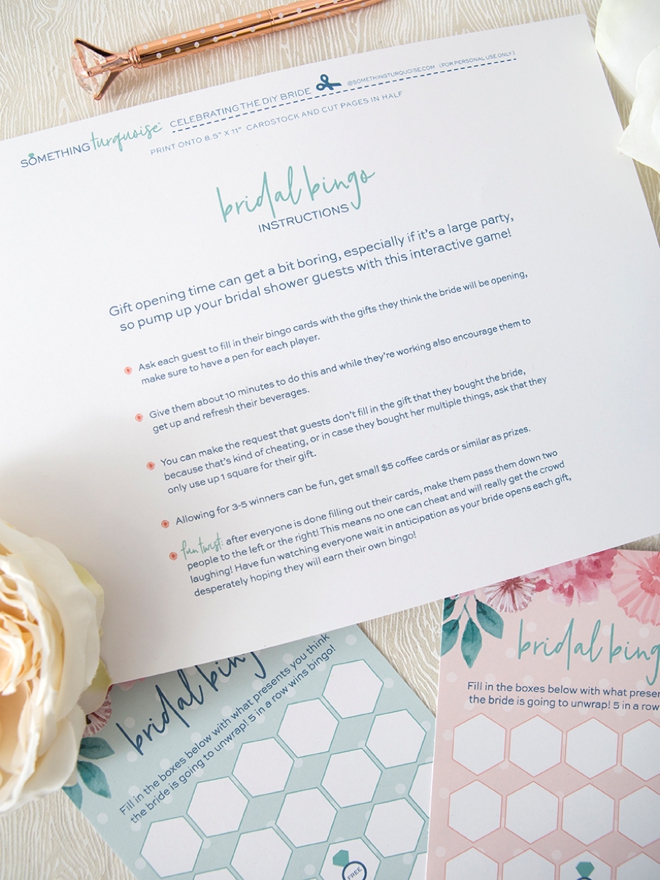 SOMETHING turquoise CELEBRATING THE DIY BRIDE @SOMETHINGTURQUOISE.COM (FOR PERSONAL USE ONLY)
PRINT ONTO 8.5" X 11" CARDSTOCK AND CUT PAGES IN HALF
bridal bingo
INSTRUCTIONS
Gift opening time can get a bit boring, especially if it's a large party,
so pump up your bridal shower guests with this interactive game!
Ask each guest to fill in their bingo cards with the gifts they think the bride will be opening,
make sure to have a pen for each player.
Give them about 10 minutes to do this and while they're working also encourage them to
get up and refresh their beverages.
You can make the request that guests don't fill in the gift that they bought the bride,
because that's kind of cheating, or in case they bought her multiple things, ask that they
only use up 1 square for their gift.
Allowing for 3-5 winners can be fun, get small $5 coffee cards or similar as prizes.
fun twist: after everyone is done filling out their cards, make them pass them down two
people to the left or the right! This means no one can cheat and will really get the crowd
laughing! Have fun watching everyone wait in anticipation as your bride opens each gift,
desperately hoping they will earn their own bingo!
bridal bing
Fill in the boxes below with what presents you think
the bride is going to unwrap! 5 in a row wins bingo!
FREE
bridal bing
Fill in the boxes below with what presen
the bride is going to unwrap! 5 in a row